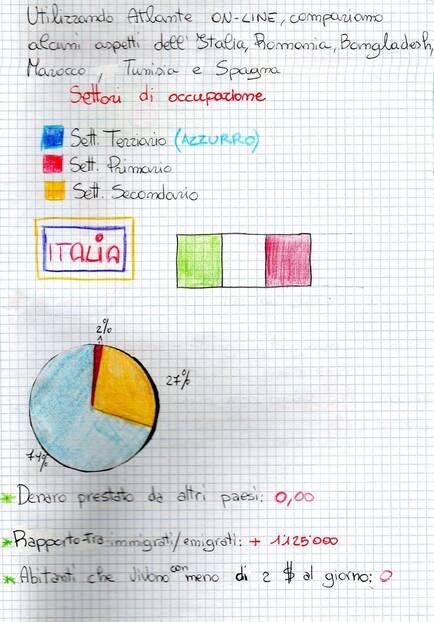 Utilizzando Atlante ON-LINE, compariamo
alcuni aspetti dell'Italia, Romania, Bangladesh,
Marocco, Tunisia e Spagna
Settori di occupazione
Sett. Terziario (AZZURRO)
Sett. Primario
Sett. Secondario
ITALIA
2%
27%
71%
* Denaro prestato da altri paesi: 0,00
* Rapporto tra immigrati/emigrati: + 1125000
* Abitanti che vivono con meno di 2 $ al giorno: 0